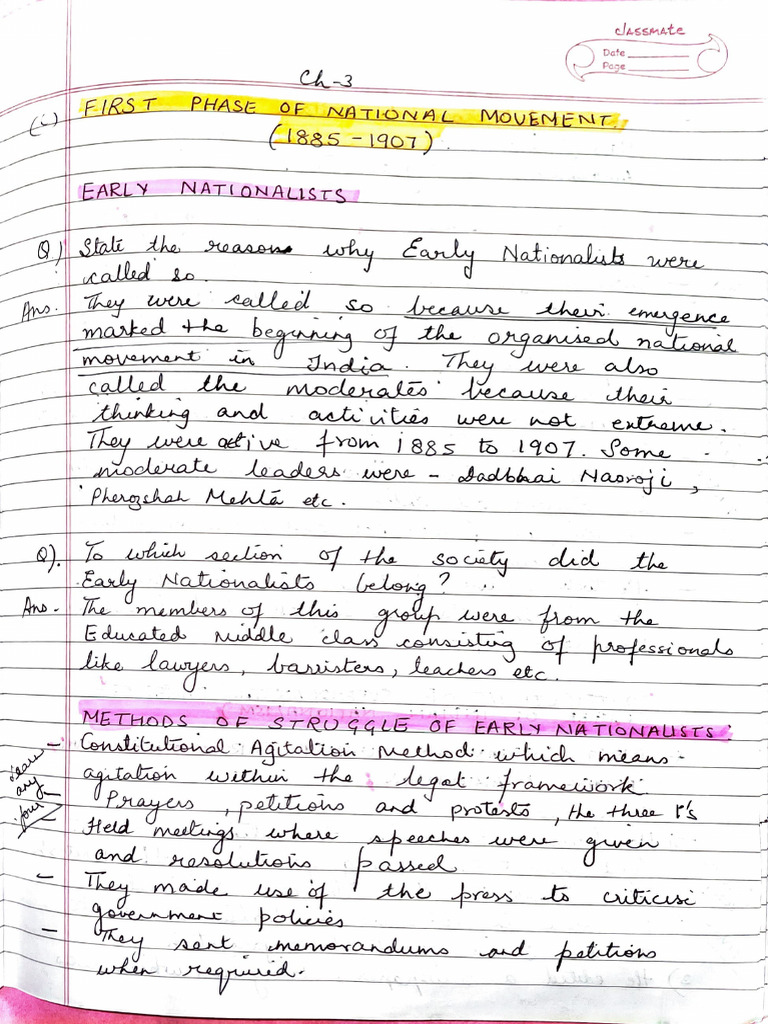 classmate
Date
Page
Ch-3
(i) FIRST PHASE OF NATIONAL MOVEMENT
(1885-1907)
EARLY NATIONALISTS
Q) State the reasons why Early Nationalists were
called so.
Ans. They were called so because their emergence
marked the beginning of the organised national
movement in India. They were also
called the moderates because their
thinking and activities were not extreme.
They were active from 1885 to 1907. Some
moderate leaders were - Dadbhai Naoroji,
Pherozshah Mehta etc.
Q). To which section of the society did the
Early Nationalists belong?
Ans. The members of this group were from the
Educated Middle class consisting of professionals
like lawyers, barristers, teachers etc.
METHODS OF STRUGGLE OF EARLY NATIONALISTS:
- Constitutional Agitation Method which means
agitation within the legal framework.
learn any four
- Prayers, petitions and protests, the three P's
- Held meetings where speeches were given
and resolutions passed
- They made use of the press to criticise
government policies
- They sent memorandums and petitions
when required.